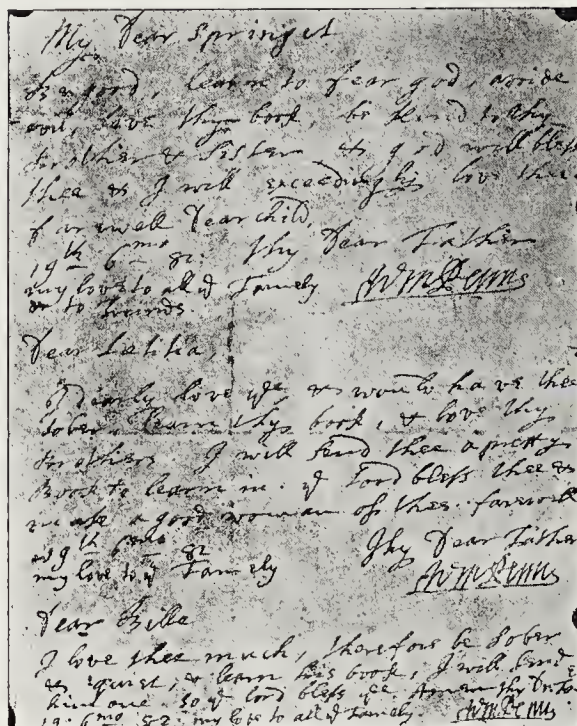 My Dear Springet
Be good, learn to fear god, avoide
evil, love thy book, be kind to thy
Brother & Sister & god will bless
thee & I will exceedingly love thee
farewell Dear child
19th 6mo 82. thy Dear Father
my love to all ye Family WmPenn
& to Friends
Dear Letitia,
I dearly love ye & would have thee
sober, learn thy book, & love thy
Brothers. I will send thee a pretty
Book to learn in. ye Lord bless thee &
make a good woman of thee. farewell
19th 6mo 82 Thy Dear Father
my love to ye Family WmPenn
Dear Bille
I love thee much, therefore be sober
& quiet, & learn his book, I will send
him one. so ye lord bless ye. Amen thy Dr: Fa
19: 6mo 82: my love to all ye Family. WmPenn